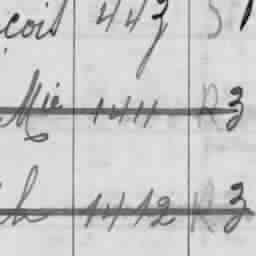 çois 443 S
Mie 1411 R3
h 1412 R3